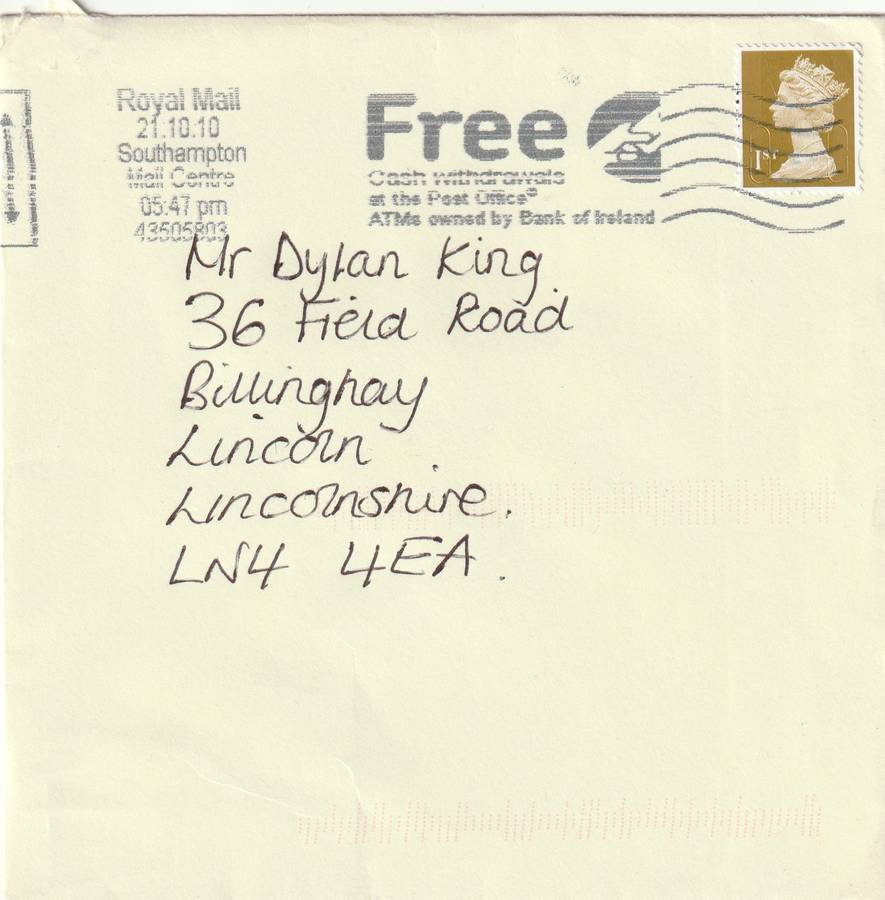 Royal Mail
21.10.10
Southampton
Mail Centre
05:47 pm
43505803
Free
Cash withdrawals
at the Post Office®
ATMs owned by Bank of Ireland
1ST
Mr Dylan King
36 Field Road
Billinghay
Lincoln
Lincolnshire.
LN4 4EA.